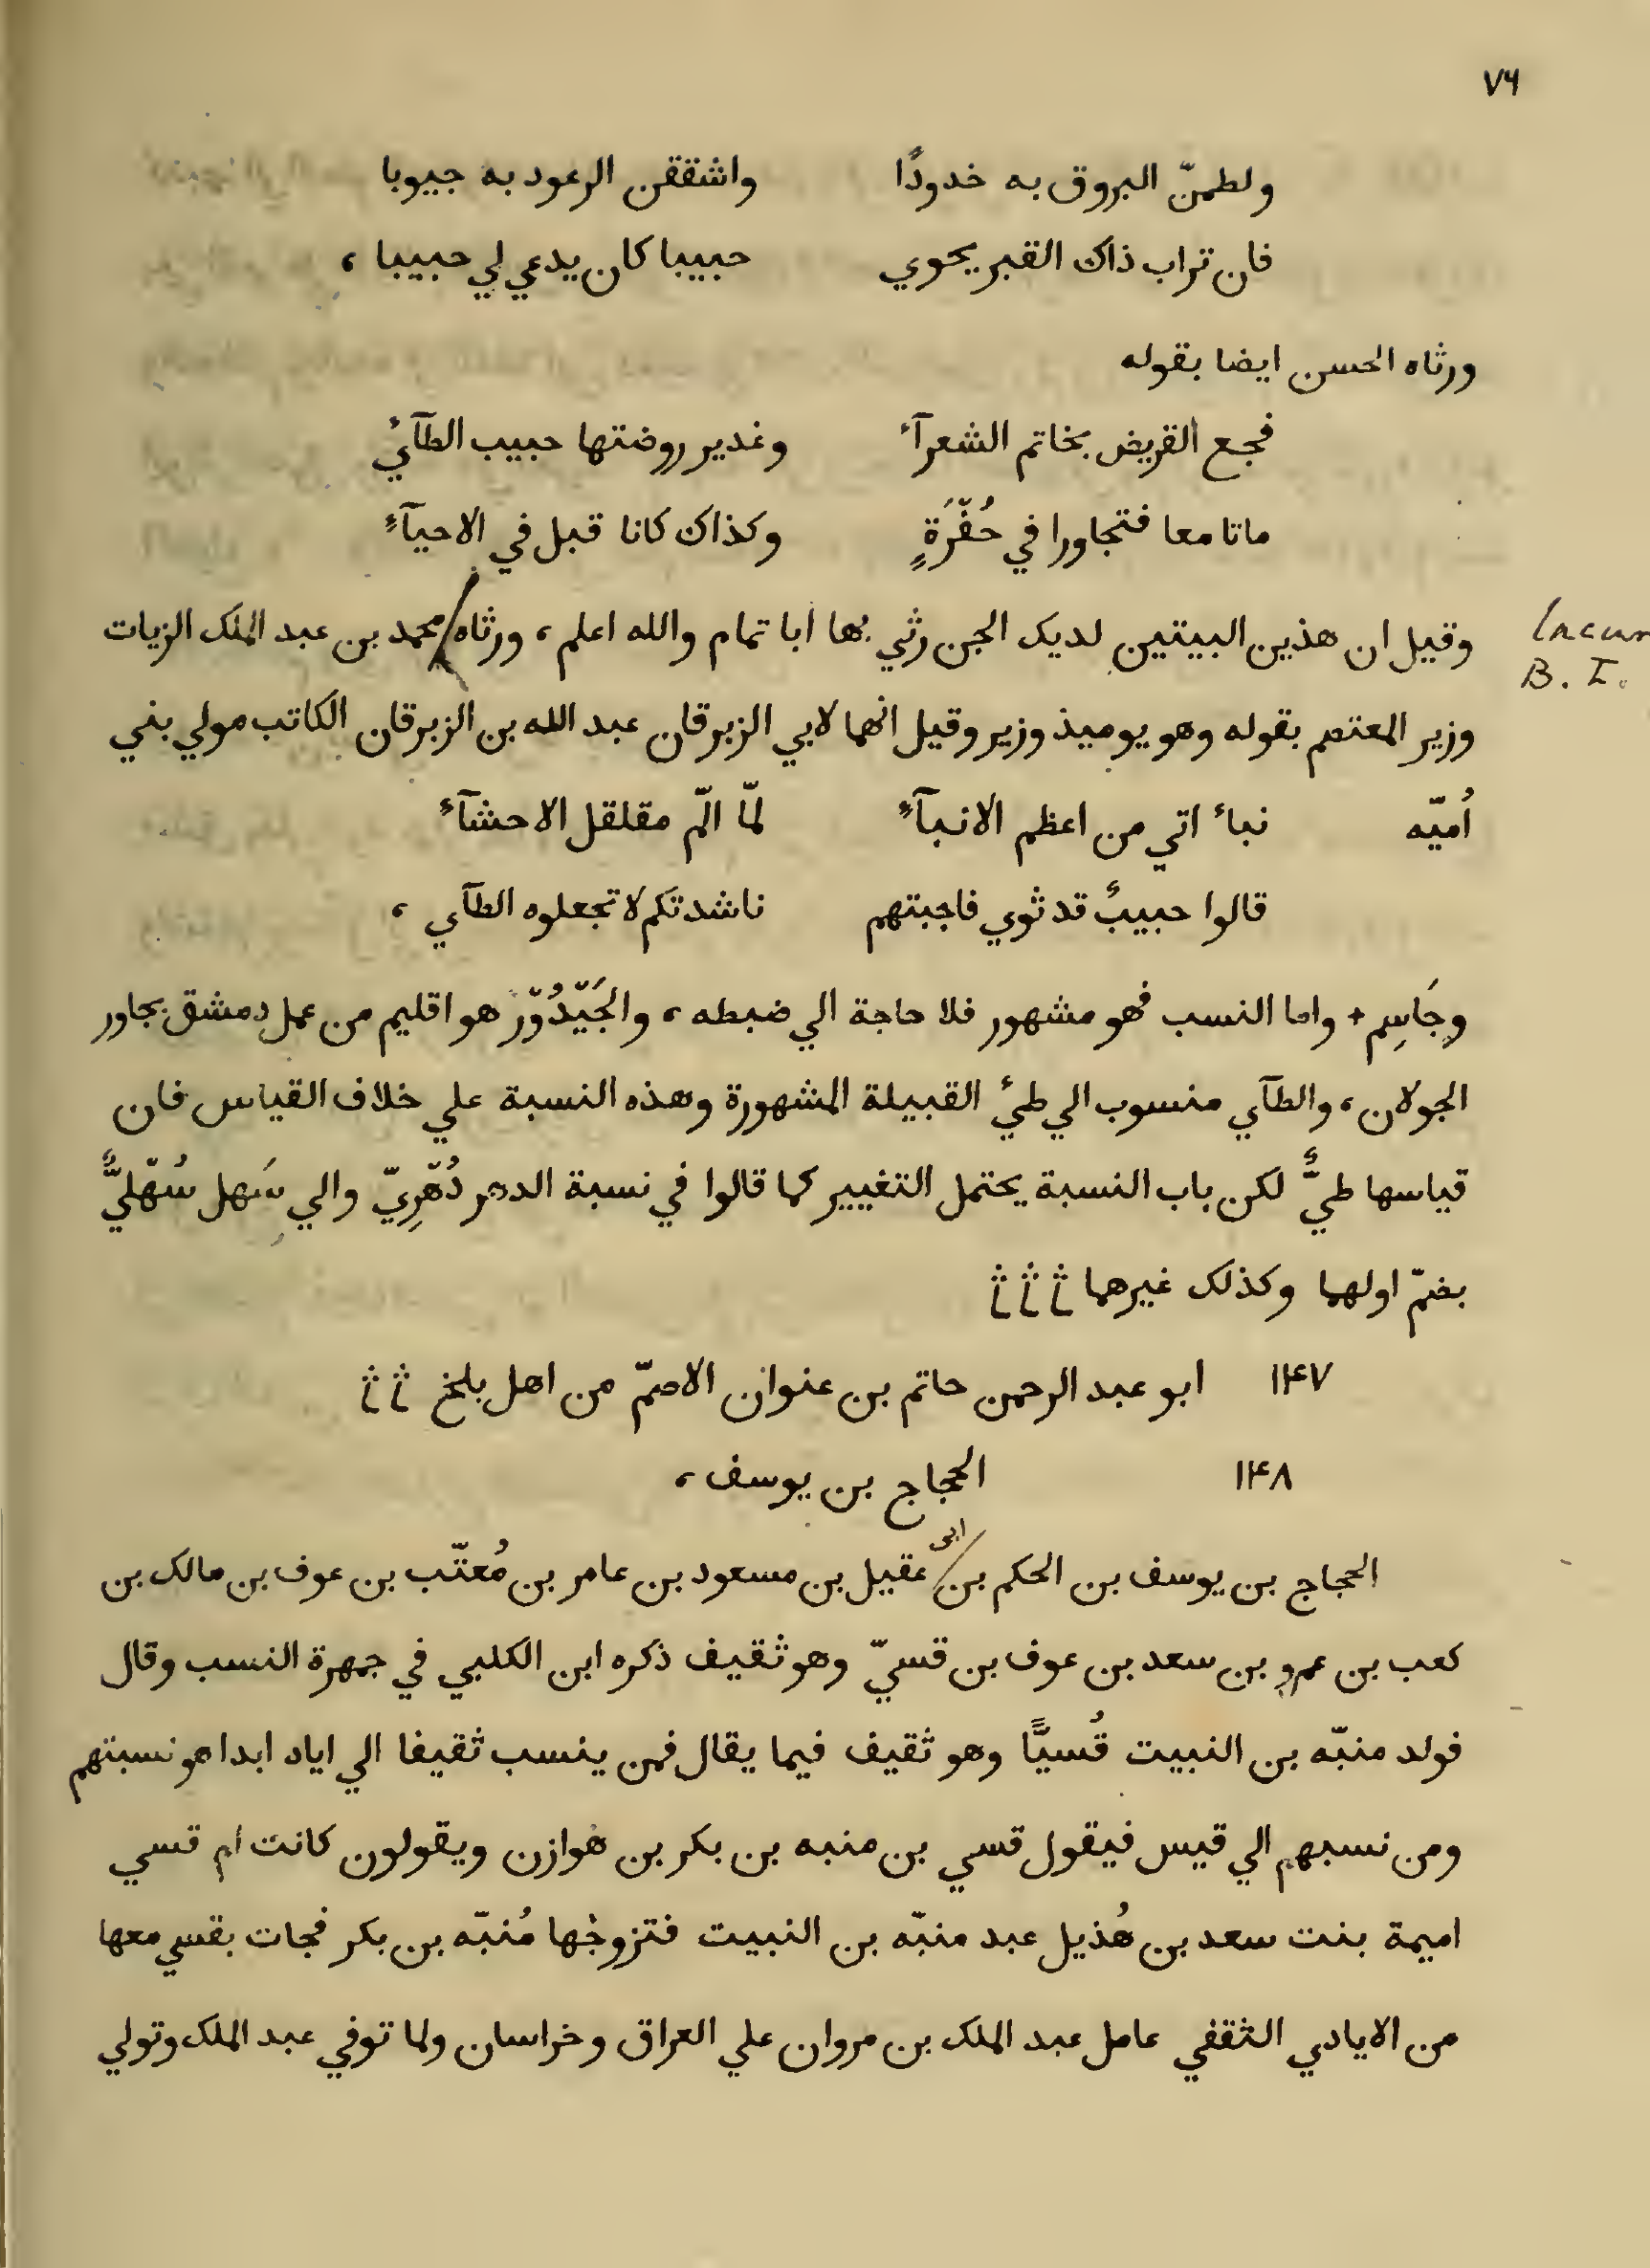 ٧٦
ولطمنّ البروق به خدودًا واشققن الرعود به جيوبا
فان تراب ذاك القبر يحوي حبيبا كان يدعي لي حبيبا ،
ورثاه الحسن ايضا بقوله
فجع القريض بخاتم الشعرآء وغدير روضتها حبيب الطآئي
ماتا معا فتجاورا في حُفْرَةٍ وكذاك كانا قبل في الاحيآءِ
وقيل ان هذين البيتين لديك الجن رثي بها ابا تمام والله اعلم ، ورثاه محمد بن عبد الملك الزيات
lacun
B. I.
وزير المعتصم بقوله وهو يوميذ وزير وقيل انهما لابي الزبرقان عبد الله بن الزبرقان الكاتب مولي بني
أُميّه نباء اتي من اعظم الانبآءِ لمّا المّ مقلقل الاحشآءِ
قالوا حبيبٌ قد ثوي فاجبتهم ناشدتكم لا تجعلوه الطآي ،
وجَاسِم + واما النسب فهو مشهور فلا حاجة الي ضبطه ، والجَيْدُوْر هو اقليم من عمل دمشق يجاور
الجولان ، والطآي منسوب الي طيء القبيلة المشهورة وهذه النسبة علي خلاف القياس فان
قياسها طيٌّ لكن باب النسبة يحتمل التغيير كما قالوا في نسبة الدهر دُهْرِيّ والي سَهل سُهْليٌّ
بضمّ اولهما وكذلك غيرهما
١٤٧ ابو عبد الرحمن حاتم بن عنوان الاصمّ من اهل بلخ
١٤٨ الحجاج بن يوسف ،
الحجاج بن يوسف بن الحكم بن ابى عقيل بن مسعود بن عامر بن مُعتّب بن عوف بن مالك بن
كعب بن عمرو بن سعد بن عوف بن قسيّ وهو ثقيف ذكره ابن الكلبي في جمهرة النسب وقال
فولد منبّه بن النبيت قُسيًّا وهو ثقيف فيما يقال فمن ينسب ثقيفا الي اياد ابدا هو نسبتهم
ومن نسبهم الي قيس فيقول قسي بن منبه بن بكر بن هوازن ويقولون كانت ام قسي
اميمة بنت سعد بن هُذيل عبد منبّه بن النبيت فتزوجها مُنبّه بن بكر فجات بقسي معها
من الايادي الثقفي عامل عبد الملك بن مروان علي العراق وخراسان ولما توفي عبد الملك وتولي